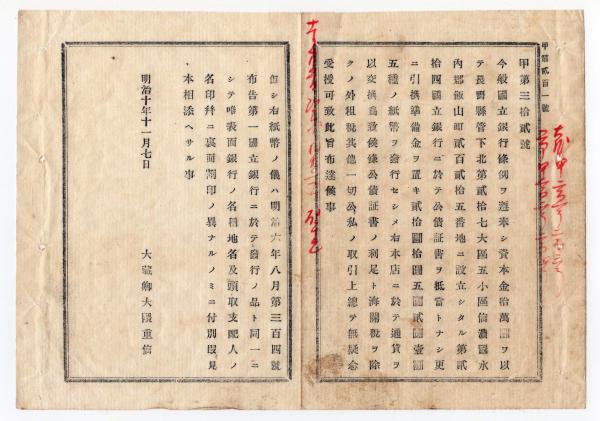 甲第貳百一號
甲第三拾貳號
今般國立銀行條例ヲ遵奉シ資本金拾萬圓ヲ以
テ長野縣管下北第貳拾七大區五小區信濃國水
內郡飯山町貳百貳拾五番地ニ設立シタル第貳
拾四國立銀行ニ於テ公債証書ヲ抵當トナシ更
ニ引換準備金ヲ置キ貳拾圓拾圓五圓貳圓壹圓
五種ノ紙幣ヲ發行セシメ右本店ニ於テ通貨ヲ
以交換爲致候條公債証書ノ利足ト海關稅ヲ除
クノ外租稅其他一切公私ノ取引上總テ無疑念
愛授可致此旨布達候事
但シ右紙幣ノ儀ハ明治六年八月第三百四號
布告第一國立銀行ニ於テ發行ノ品ト同一ニ
シテ唯表面銀行ノ名稱地名及頭取支配人ノ
名印幷ニ裏面割印ノ異ナルノミニ付別段見
本相添ヘサル事
明治十年十一月七日
大藏卿大隈重信